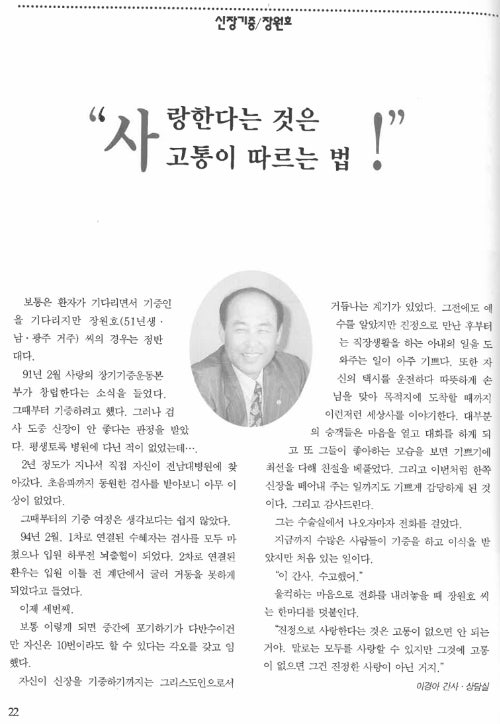 신장기증/장원호
“사랑한다는 것은
고통이 따르는 법!”
보통은 환자가 기다리면서 기증인
을 기다리지만 장원호(51년생·
남·광주 거주) 씨의 경우는 정반
대다.
91년 2월 사랑의 장기기증운동본
부가 창립한다는 소식을 들었다.
그때부터 기증하려고 했다. 그러나 검
사 도중 신장이 안 좋다는 판정을 받았
다. 평생토록 병원에 다닌 적이 없었는데….
2년 정도가 지나서 직접 자신이 전남대병원에 찾
아갔다. 초음파까지 동원한 검사를 받아보니 아무 이
상이 없었다.
그때부터의 기증 여정은 생각보다는 쉽지 않았다.
94년 2월, 1차로 연결된 수혜자는 검사를 모두 마
쳤으나 입원 하루전 뇌출혈이 되었다. 2차로 연결된
환우는 입원 이틀 전 계단에서 굴러 거동을 못하게
되었다고 들었다.
이제 세번째.
보통 이렇게 되면 중간에 포기하기가 다반수이건
만 자신은 10번이라도 할 수 있다는 각오를 갖고 임
했다.
자신이 신장을 기증하기까지는 그리스도인으로서
거듭나는 계기가 있었다. 그전에도 예
수를 알았지만 진정으로 만난 후부터
는 직장생활을 하는 아내의 일을 도
와주는 일이 아주 기쁘다. 또한 자
신의 택시를 운전하다 따뜻하게 손
님을 맞아 목적지에 도착할 때까지
이런저런 세상사를 이야기한다. 대부분
의 승객들은 마음을 열고 대화를 하게 되
고 또 그들이 좋아하는 모습을 보면 기쁘기에
최선을 다해 친절을 베풀었다. 그리고 이번처럼 한쪽
신장을 떼어내 주는 일까지도 기쁘게 감당하게 된 것
이다. 그리고 감사드린다.
그는 수술실에서 나오자마자 전화를 걸었다.
지금까지 수많은 사람들이 기증을 하고 이식을 받
았지만 처음 있는 일이다.
“이 간사, 수고했어.”
울컥하는 마음으로 전화를 내려놓을 때 장원호 씨
는 한마디를 덧붙인다.
“진정으로 사랑한다는 것은 고통이 없으면 안 되는
거야. 말로는 모두를 사랑할 수 있지만 그것에 고통
이 없으면 그건 진정한 사랑이 아닌 거지.”
이경아 간사·상담실
22